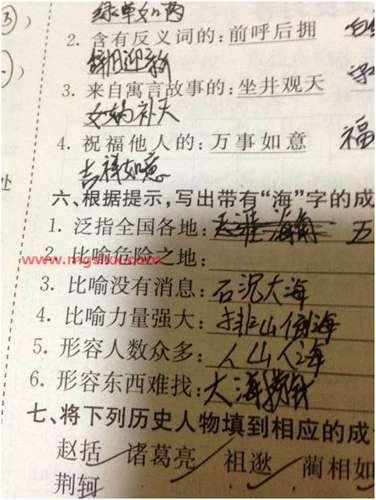 绿草如茵
2. 含有反义词的: 前呼后拥
辞旧迎新
3. 来自寓言故事的: 坐井观天
女娲补天
4. 祝福他人的: 万事如意 福
吉祥如意
处
六、根据提示,写出带有“海”字的成
1. 泛指全国各地: 天涯海角 五
2. 比喻危险之地:
www.mgsllcw.com
3. 比喻没有消息: 石沉大海
4. 比喻力量强大: 排山倒海
5. 形容人数众多: 人山人海
6. 形容东西难找: 大海捞针
七、将下列历史人物填到相应的成
赵括 诸葛亮 祖逖 蔺相如
荆轲